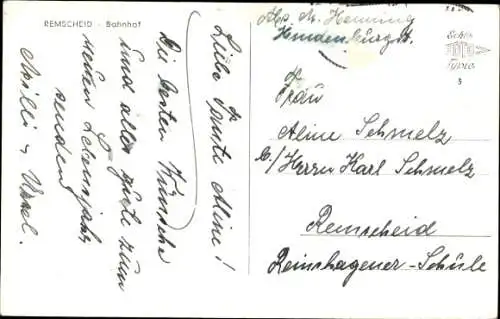 REMSCHEID - Bahnhof
Liebe Tante Aline!
Die besten Wünsche
und alles Gute zum
neuen Lebensjahr
senden
Willi u. Ursel.
Abs. M. Henning
Hindenburgstr.
Echte
FOTO
Typie
5
Frau
Aline Schmelz
b./Herrn Karl Schmelz
Remscheid
Reinshagener-Schule